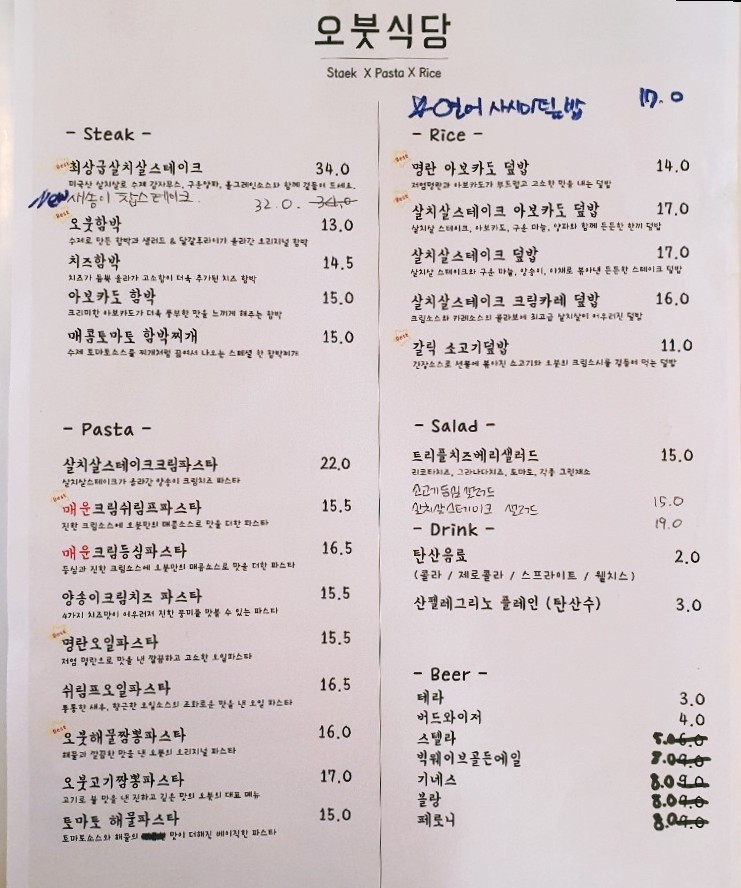 오붓식당
Staek X Pasta X Rice
- Steak -
Best 최상급살치살스테이크 34.0
미국산 살치살로 수제 감자무스, 구운양파, 홀그레인소스와 함께 곁들여 드세요.
New 새송이 찹스테이크. 32.0. 34.0
Best 오붓함박 13.0
수제로 만든 함박과 샐러드 & 달걀후라이가 올라간 오리지널 함박
치즈함박 14.5
치즈가 듬뿍 올라가 고소함이 더욱 추가된 치즈 함박
아보카도 함박 15.0
크리미한 아보카도가 더욱 풍부한 맛을 느끼게 해주는 함박
매콤토마토 함박찌개 15.0
수제 토마토소스를 찌개처럼 끓여서 나오는 스페셜 한 함박찌개
- Pasta -
살치살스테이크크림파스타 22.0
살치살스테이크가 올라간 양송이 크림치즈 파스타
Best 매운크림쉬림프파스타 15.5
진한 크림소스에 오붓만의 매콤소스로 맛을 더한 파스타
매운크림등심파스타 16.5
등심과 진한 크림소스에 오붓만의 매콤소스로 맛을 더한 파스타
양송이크림치즈 파스타 15.5
4가지 치즈맛이 어우러져 진한 풍미를 맛볼 수 있는 파스타
Best 명란오일파스타 15.5
저염 명란으로 맛을 낸 깔끔하고 고소한 오일파스타
쉬림프오일파스타 16.5
통통한 새우, 향긋한 오일소스의 조화로운 맛을 낸 오일 파스타
Best 오붓해물짬뽕파스타 16.0
해물과 깔끔한 맛을 낸 오붓의 오리지널 파스타
오붓고기짬뽕파스타 17.0
고기로 불 맛을 낸 진하고 깊은 맛의 오붓의 대표 메뉴
토마토 해물파스타 15.0
토마토소스와 해물의 맛이 더해진 베이직한 파스타
☆연어 사시미덮밥 17.0
- Rice -
Best 명란 아보카도 덮밥 14.0
저염명란과 아보카도가 부드럽고 고소한 맛을 내는 덮밥
Best 살치살스테이크 아보카도 덮밥 17.0
살치살 스테이크, 아보카도, 구운 마늘, 양파와 함께 든든한 한끼 덮밥
살치살스테이크 덮밥 17.0
살치살 스테이크와 구운 마늘, 양송이, 야채로 볶아낸 든든한 스테이크 덮밥
살치살스테이크 크림카레 덮밥 16.0
크림소스와 카레소스의 콜라보에 최고급 살치살이 어우러진 덮밥
Best 갈릭 소고기덮밥 11.0
간장소스로 센불에 볶아진 소고기와 오붓의 크림소시를 곁들여 먹는 덮밥
- Salad -
트리플치즈베리샐러드 15.0
리코타치즈, 그라나다치즈, 토마토, 각종 그린채소
소고기등심 샐러드 15.0
살치살스테이크 샐러드 19.0
- Drink -
탄산음료 2.0
(콜라 / 제로콜라 / 스프라이트 / 웰치스)
산펠레그리노 플레인 (탄산수) 3.0
- Beer -
테라 3.0
버드와이저 4.0
스텔라 5.0 6.0
빅웨이브골든에일 7.0 9.0
기네스 8.0 9.0
블랑 8.0 9.0
페로니 8.0 9.0